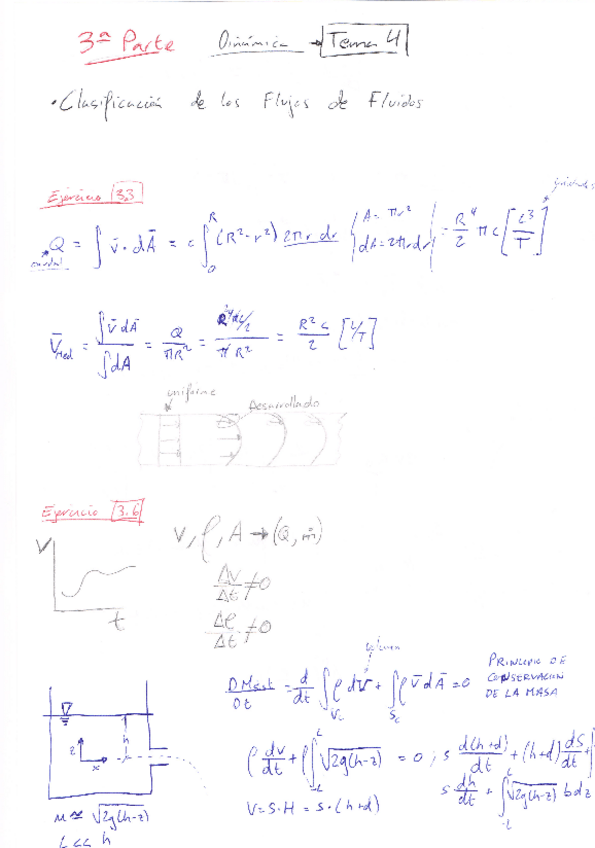 3ª Parte Dinámica → Tema 4
• Clasificación de los Flujos de Fluidos
Ejercicio 3.3
Q = ∫ v̄ · dĀ = c ∫₀ᴿ (R² - r²) 2πr dr { A = πr² dA = 2πr dr } = R⁴/2 π c [L³/T]
caudal
V̄med = ∫v̄dĀ / ∫dA = Q / πR² = / πR² = R² c / 2 [L/T]
uniforme
Desarrollado
Ejercicio 3.6
V
t
V, ρ, A → (Q, ṁ)
ΔV/Δt ≠ 0
Δρ/Δt ≠ 0
volumen
DMsist/Dt = d/dt ∫Vc ρ dV + ∫Sc ρ v̄ dĀ = 0
PRINCIPIO DE
CONSERVACION
DE LA MASA
ρ dv/dt + ρ∫ √2g(h-z) = 0 ; s d(h+d)/dt + (h+d) dS/dt +
V = S·H = S·(h+d)
s dh/dt + ∫ √2g(h-z) b dz
h
z
x
u ≃ √2g(h-z)
L << h